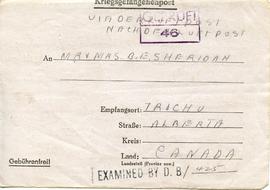 Kriegsgefangenenpost
46
An MR + MRS. B. E. SHERIDAN
Empfangsort: TROCHU
Straße: ALBERTA
Kreis:
Land: CANADA
Landesteil (Provinz usw.)
Gebührenfrei!
EXAMINED BY D.B/425